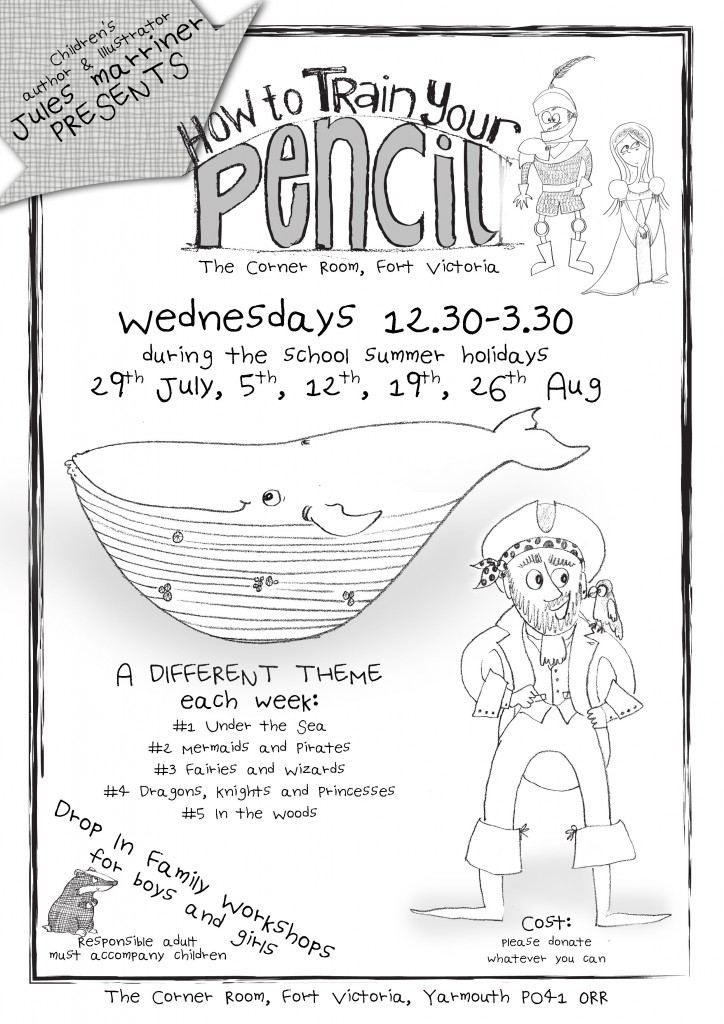 Children's
author & illustrator
Jules Marriner
PRESENTS
How to Train Your
Pencil
The Corner Room, Fort Victoria
Wednesdays 12.30-3.30
during the school summer holidays
29th July, 5th, 12th, 19th, 26th Aug
A DIFFERENT THEME
each week:
#1 Under the Sea
#2 Mermaids and Pirates
#3 Fairies and Wizards
#4 Dragons, Knights and Princesses
#5 In the Woods
Drop In Family Workshops
for boys and girls
Responsible adult
must accompany children
Cost:
please donate
whatever you can
The Corner Room, Fort Victoria, Yarmouth PO41 0RR